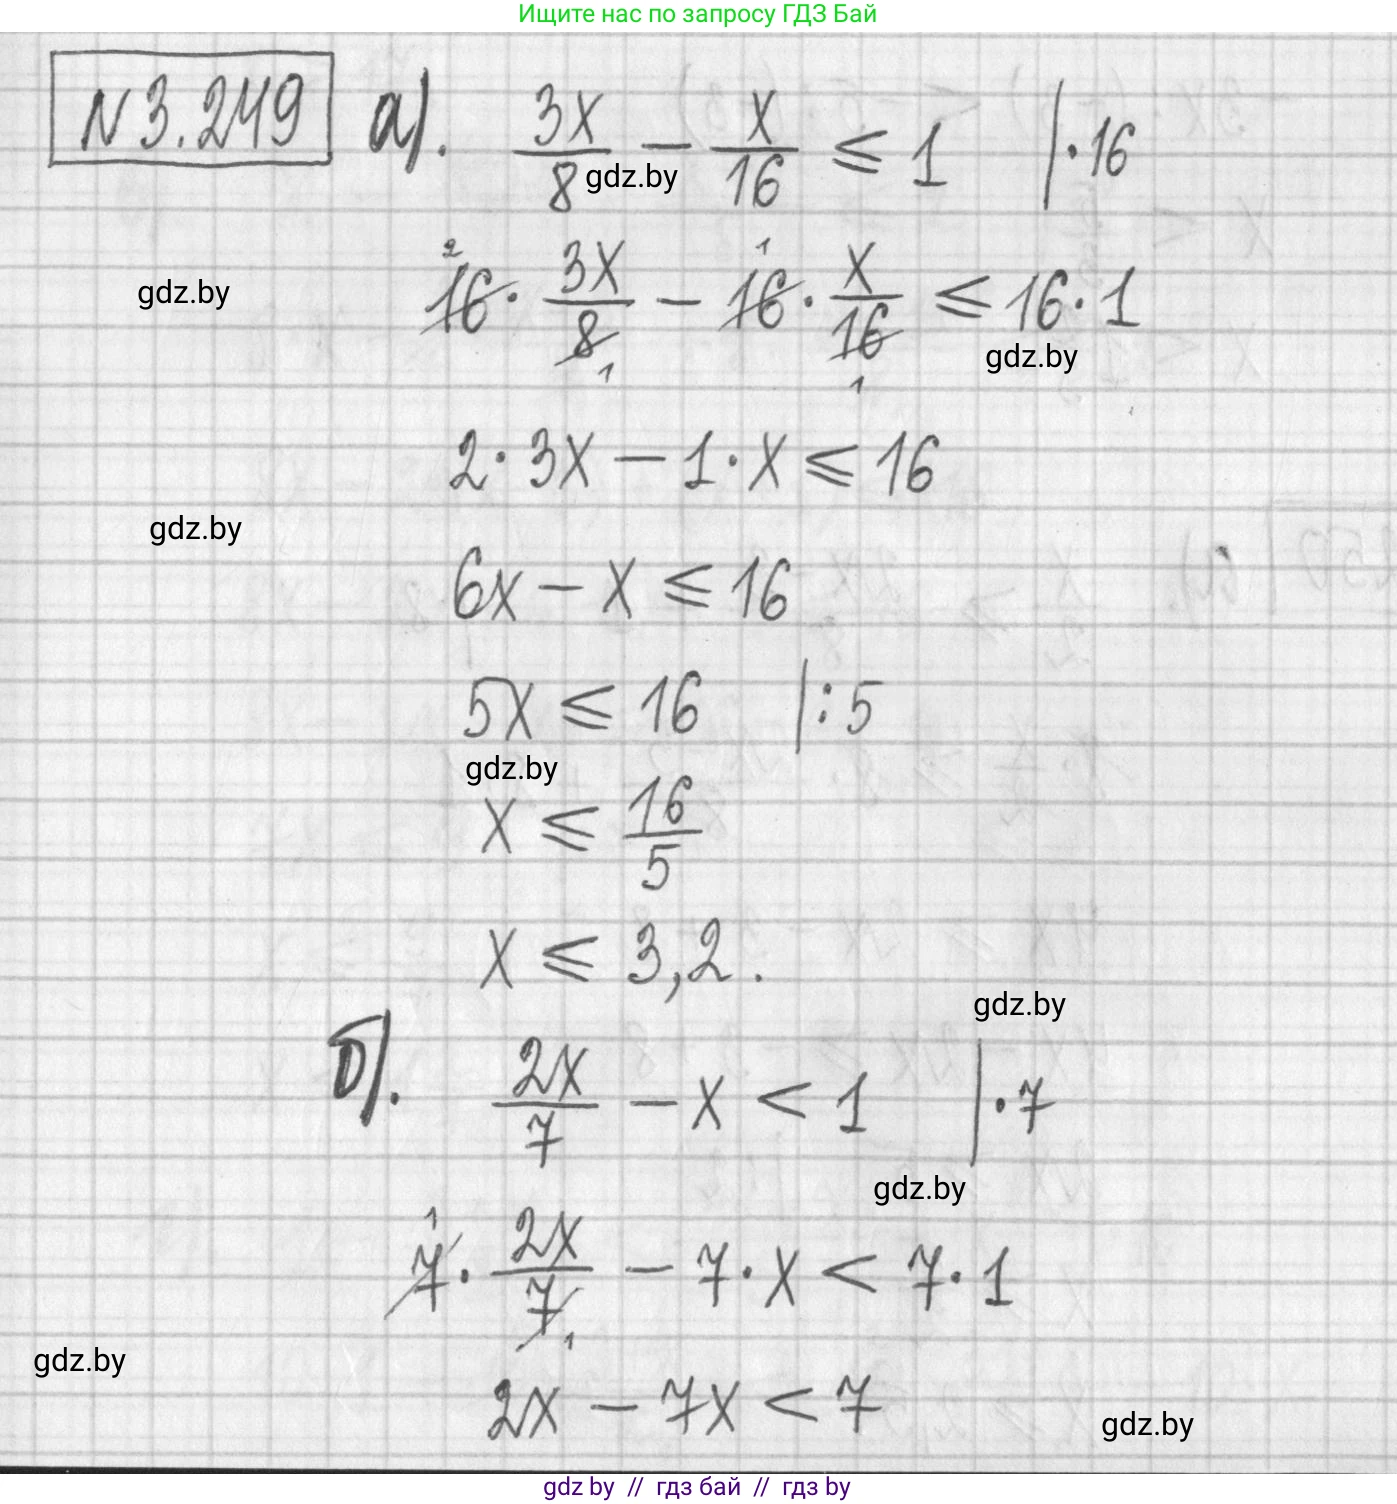 Ищите нас по запросу ГДЗ Бай
N 3.249 а). 3x/8 − x/16 ⩽ 1 | · 16
gdz.by
16² · 3x/8₁ − 16¹ · x/16₁ ⩽ 16 · 1
gdz.by
gdz.by
2 · 3x − 1 · x ⩽ 16
gdz.by
6x − x ⩽ 16
5x ⩽ 16 | : 5
gdz.by
x ⩽ 16/5
x ⩽ 3,2.
gdz.by
б). 2x/7 − x < 1 | · 7
gdz.by
7¹ · 2x/7₁ − 7 · x < 7 · 1
gdz.by
2x − 7x < 7
gdz.by
gdz by // гдз бай // гдз by